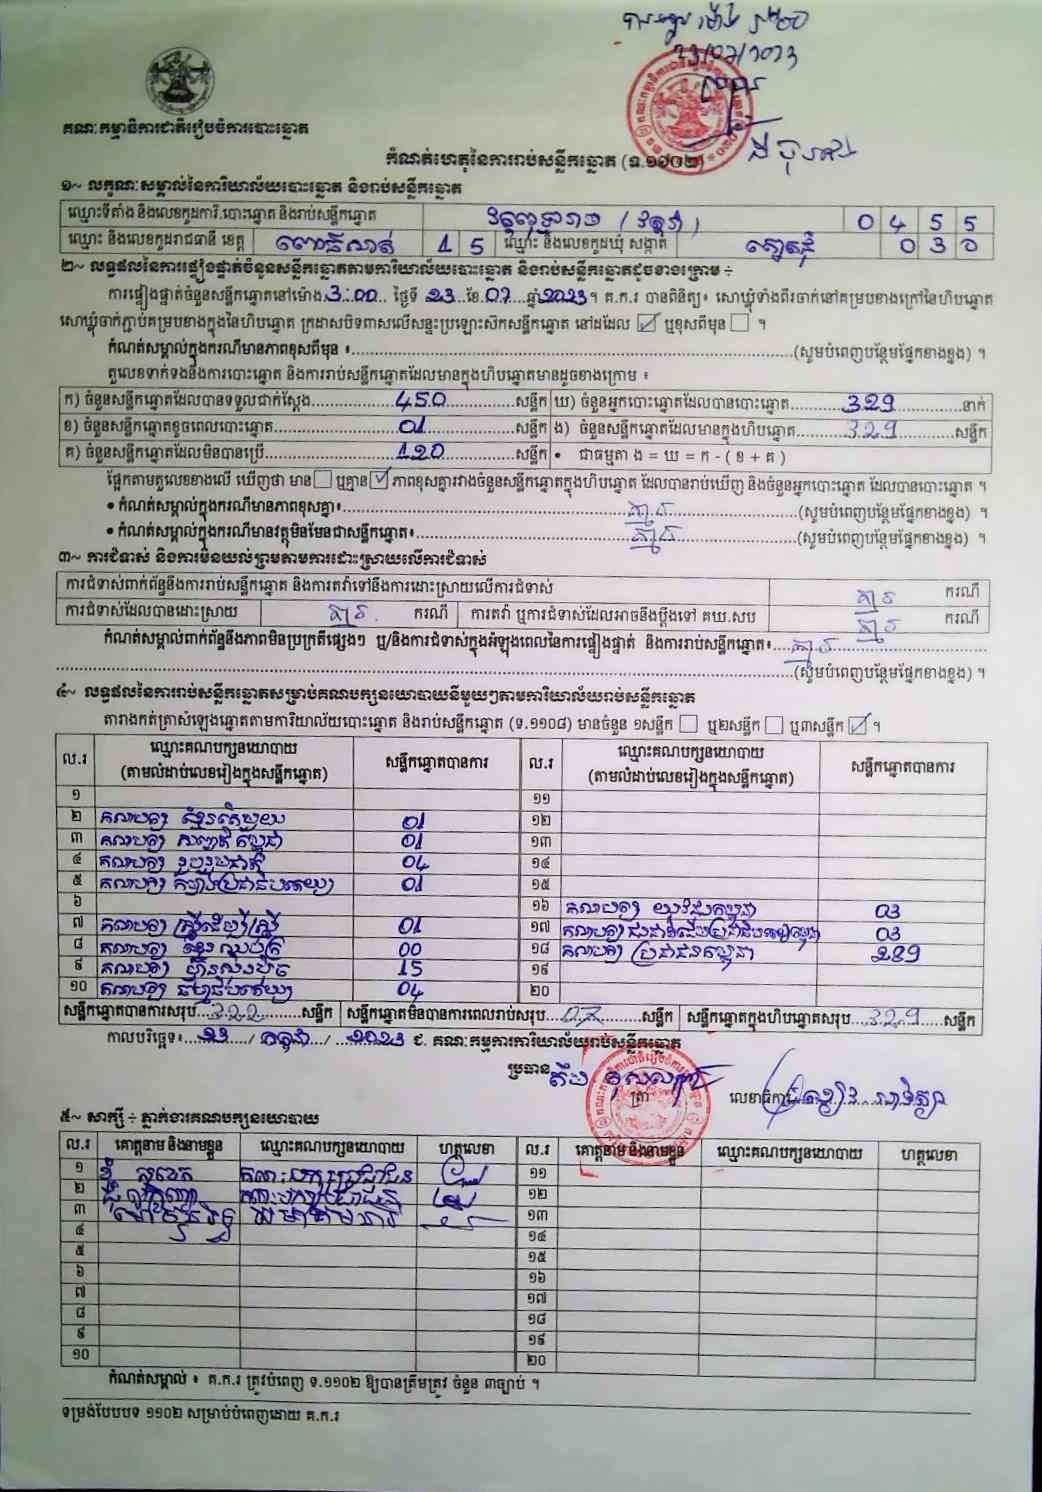 23/07/2023
គណៈកម្មាធិការជាតិរៀបចំការបោះឆ្នោត
កំណត់ហេតុនៃការរាប់សន្លឹកឆ្នោត (ទ.១១០២)
១~ លក្ខណៈសម្គាល់នៃការិយាល័យបោះឆ្នោត និងរាប់សន្លឹកឆ្នោត
ឈ្មោះទីតាំង និងលេខកូដការិ.បោះឆ្នោត និងរាប់សន្លឹកឆ្នោត 0 4 5 5
ឈ្មោះ និងលេខកូដរាជធានី ខេត្ត ពោធិ៍សាត់ 1 5 ឈ្មោះ និងលេខកូដឃុំ សង្កាត់ 0 3 0
២~ លទ្ធផលនៃការផ្ទៀងផ្ទាត់ចំនួនសន្លឹកឆ្នោតតាមការិយាល័យបោះឆ្នោត និងរាប់សន្លឹកឆ្នោតដូចខាងក្រោម ÷
ការផ្ទៀងផ្ទាត់ចំនួនសន្លឹកឆ្នោតនៅម៉ោង 3:00 ថ្ងៃទី 23 ខែ 07 ឆ្នាំ 2023 ។ គ.ក.រ បានពិនិត្យ៖ សោឃ្មុំទាំងពីរចាក់នៅគម្របខាងក្រៅនៃហិបឆ្នោត
សោឃ្មុំចាក់ភ្ជាប់គម្របខាងក្នុងនៃហិបឆ្នោត ក្រដាសបិទពាសលើសន្ទះប្រឡោះសិកសន្លឹកឆ្នោត នៅដដែល ☑ ឬខុសពីមុន ☐ ។
កំណត់សម្គាល់ក្នុងករណីមានភាពខុសពីមុន ៖ (សូមបំពេញបន្ថែមផ្នែកខាងខ្នង) ។
តួលេខទាក់ទងនឹងការបោះឆ្នោត និងការរាប់សន្លឹកឆ្នោតដែលមានក្នុងហិបឆ្នោតមានដូចខាងក្រោម ៖
ក) ចំនួនសន្លឹកឆ្នោតដែលបានទទួលជាក់ស្តែង 450 សន្លឹក ឃ) ចំនួនអ្នកបោះឆ្នោតដែលបានបោះឆ្នោត 329 នាក់
ខ) ចំនួនសន្លឹកឆ្នោតខូចពេលបោះឆ្នោត 01 សន្លឹក ង) ចំនួនសន្លឹកឆ្នោតដែលមានក្នុងហិបឆ្នោត 329 សន្លឹក
គ) ចំនួនសន្លឹកឆ្នោតដែលមិនបានប្រើ 120 សន្លឹក • ជាធម្មតា ង = ឃ = ក - ( ខ + គ )
ផ្អែកតាមតួលេខខាងលើ ឃើញថា មាន ☐ ឬគ្មាន ☑ ភាពខុសគ្នារវាងចំនួនសន្លឹកឆ្នោតក្នុងហិបឆ្នោត ដែលបានរាប់ឃើញ និងចំនួនអ្នកបោះឆ្នោត ដែលបានបោះឆ្នោត ។
• កំណត់សម្គាល់ក្នុងករណីមានភាពខុសគ្នា៖ គ្មាន (សូមបំពេញបន្ថែមផ្នែកខាងខ្នង) ។
• កំណត់សម្គាល់ក្នុងករណីមានវត្ថុមិនមែនជាសន្លឹកឆ្នោត៖ គ្មាន (សូមបំពេញបន្ថែមផ្នែកខាងខ្នង) ។
៣~ ការជំទាស់ និងការមិនយល់ព្រមតាមការដោះស្រាយលើការជំទាស់
ការជំទាស់ពាក់ព័ន្ធនឹងការរាប់សន្លឹកឆ្នោត និងការតវ៉ាទៅនឹងការដោះស្រាយលើការជំទាស់ គ្មាន ករណី
ការជំទាស់ដែលបានដោះស្រាយ គ្មាន ករណី ការតវ៉ា ឬការជំទាស់ដែលអាចនឹងប្តឹងទៅ គឃ.សប គ្មាន ករណី
កំណត់សម្គាល់ពាក់ព័ន្ធនឹងភាពមិនប្រក្រតីផ្សេងៗ ឬ/និងការជំទាស់ក្នុងអំឡុងពេលនៃការផ្ទៀងផ្ទាត់ និងការរាប់សន្លឹកឆ្នោត៖ គ្មាន
(សូមបំពេញបន្ថែមផ្នែកខាងខ្នង) ។
៤~ លទ្ធផលនៃការរាប់សន្លឹកឆ្នោតសម្រាប់គណបក្សនយោបាយនីមួយៗតាមការិយាល័យរាប់សន្លឹកឆ្នោត
តារាងកត់ត្រាសំឡេងឆ្នោតតាមការិយាល័យបោះឆ្នោត និងរាប់សន្លឹកឆ្នោត (ទ.១១០៨) មានចំនួន ១សន្លឹក ☐ ឬ២សន្លឹក ☐ ឬ៣សន្លឹក ☑ ។
ល.រ ឈ្មោះគណបក្សនយោបាយ (តាមលំដាប់លេខរៀងក្នុងសន្លឹកឆ្នោត) សន្លឹកឆ្នោតបានការ ល.រ ឈ្មោះគណបក្សនយោបាយ (តាមលំដាប់លេខរៀងក្នុងសន្លឹកឆ្នោត) សន្លឹកឆ្នោតបានការ
១ ១១
២ គណបក្ស ខ្មែរតែមួយ 01 ១២
៣ គណបក្ស សញ្ជាតិកម្ពុជា 01 ១៣
៤ គណបក្ស ខ្មែររួបរួមជាតិ 04 ១៤
៥ គណបក្ស ក្បាលប្រជាធិបតេយ្យ 01 ១៥
៦ ១៦ គណបក្ស យុវជនកម្ពុជា 03
៧ គណបក្ស ស្ត្រីដើម្បីស្ត្រី 01 ១៧ 03
៨ គណបក្ស ខ្មែរឈប់ក្រ 00 ១៨ គណបក្ស ប្រជាជនកម្ពុជា 289
៩ គណបក្ស ហ្វ៊ុនស៊ិនប៉ិច 15 ១៩
១០ គណបក្ស ធម្មាធិបតេយ្យ 04 ២០
សន្លឹកឆ្នោតបានការសរុប 322 សន្លឹក សន្លឹកឆ្នោតមិនបានការពេលរាប់សរុប 07 សន្លឹក សន្លឹកឆ្នោតក្នុងហិបឆ្នោតសរុប 329 សន្លឹក
កាលបរិច្ឆេទ៖ 23 / កក្កដា / 2023 ជ. គណៈកម្មការការិយាល័យរាប់សន្លឹកឆ្នោត
ប្រធាន ត្រា លេខាធិការ
៥~ សាក្សី ÷ ភ្នាក់ងារគណបក្សនយោបាយ
ល.រ គោត្តនាម និងនាមខ្លួន ឈ្មោះគណបក្សនយោបាយ ហត្ថលេខា ល.រ គោត្តនាម និងនាមខ្លួន ឈ្មោះគណបក្សនយោបាយ ហត្ថលេខា
១ គណៈបក្សប្រជាជន ១១
២ ១២
៣ ១៣
៤ ១៤
៥ ១៥
៦ ១៦
៧ ១៧
៨ ១៨
៩ ១៩
១០ ២០
កំណត់សម្គាល់ ៖ គ.ក.រ ត្រូវបំពេញ ទ.១១០២ ឱ្យបានត្រឹមត្រូវ ចំនួន ៣ច្បាប់ ។
ទម្រង់បែបបទ ១១០២ សម្រាប់បំពេញដោយ គ.ក.រ